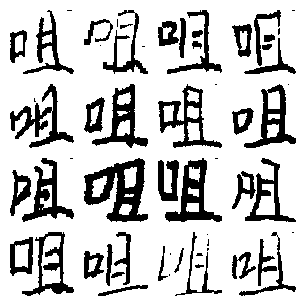 咀咀咀咀
咀咀咀咀
咀咀咀咀
咀咀咀咀